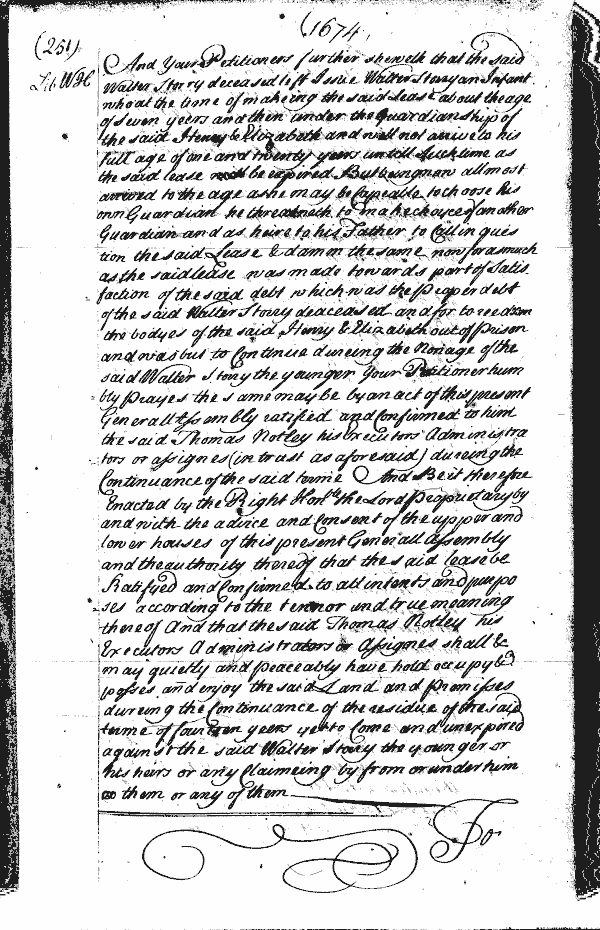 (1674,
(251)
Lib WH
And Your Petitioners further sheweth that the said
Walter Storry deceased left Issue Walter Story an Infant
who at the time of makeing the said Lease about the age
of seven yeares and then under the Guardianship of
the said Henry & Elizabeth and will not arrive to his
full age of one and twenty yeers untill such time as
the said lease will be expired But being now allmost
arrived to the age as he may be Capeable to choose his
own Guardian he threatneth to make choyce of another
Guardian and as heire to his Father to Call in ques
tion the said Lease & damn the same now forasmuch
as the said lease was made towards part of Satis
faction of the said debt which was the proper debt
of the said Walter Storry deaceased and for to redeem
the bodyes of the said Henry & Elizabeth out of Prison
and was but to Continue dureing the Nonage of the
said Walter Story the younger Your Petitioner hum
bly prayes the same may be by an act of this present
Generall Assembly ratified and Confirmed to him
the said Thomas Notley his Executors Administra
tors or assignes (in trust as aforesaid) dureing the
Continuance of the said terme And Be it therefore
Enacted by the Right Honble the Lord Propriatary by
and with the advice and Consent of the upper and
lower houses of this present Generall Assembly
and the authority thereof that the said lease be
Ratifyed and Confirmed to all intents and purpo
ses according to the tennor and true meaning
thereof And that the said Thomas Notley his
Executors Administrators or Assignes shall &
may quietly and peaceably have hold occupy &
posses and enjoy the said Land and Premisses
dureing the Continuance of the residue of the said
terme of fourteen yeers yet to Come and unexpired
against the said Walter Story the younger or
his heirs or any Claimeing by from or under him
or them or any of them
To